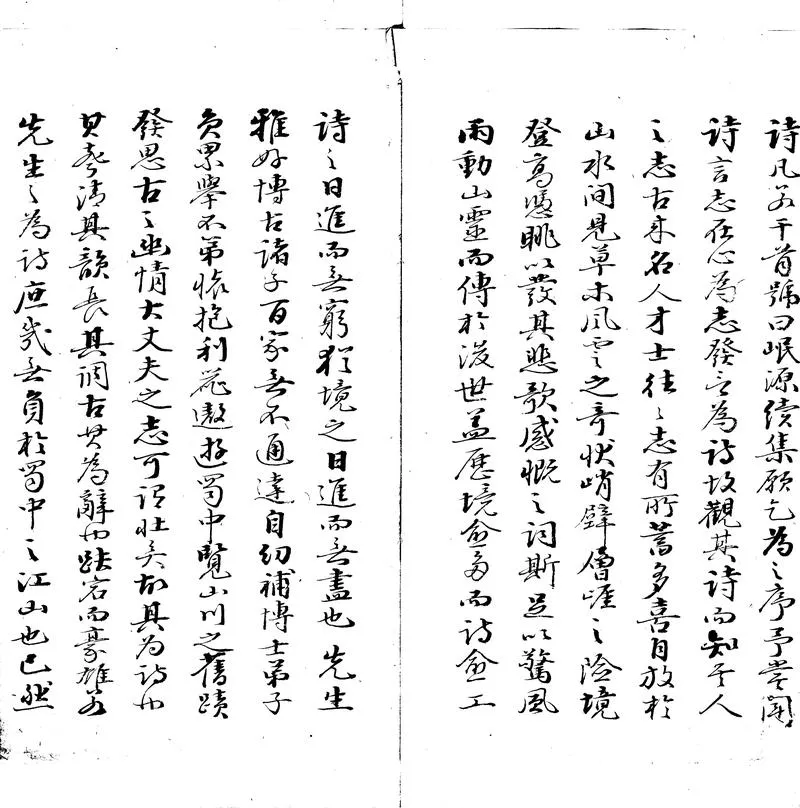 詩凡若干首號曰岷源續集願乞為之序予嘗聞
詩言志在心為志發言為詩故觀其詩而知其人
之志古來名人才士往之志有所蓄多喜自放於
山水間見草木風雲之奇狀峭壁層崖之險境
登高憑眺以發其悲歌感慨之詞斯足以驚風
雨動山靈而傳於後世蓋歷境愈多而詩愈工
詩之日進而無窮猶境之日進而無盡也先生
雅好博古諸子百家無不通達自幼補博士弟子
負累舉不第懷抱利器遨遊蜀中覽山川之舊蹟
發思古之幽情大丈夫之志可謂壯矣故其為詩也
其聲清其韻長其調古其為辭也跌宕而豪雄若
先生之為詩庶幾無負於蜀中之江山也已然